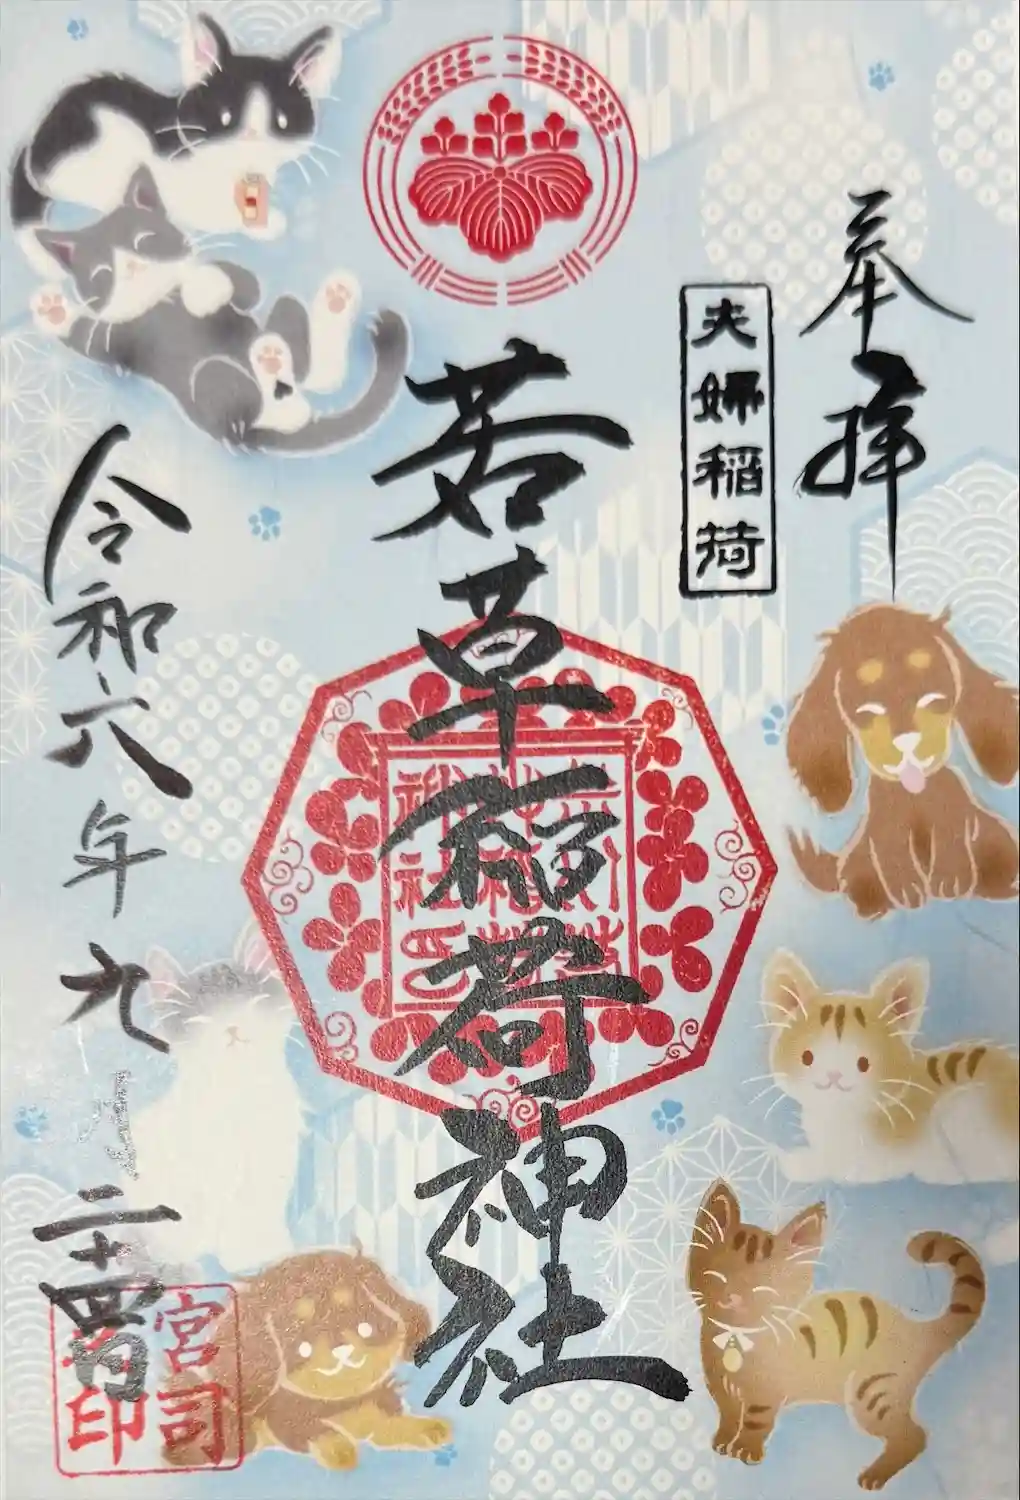 奉拝
夫婦稲荷
若草稲荷神社
令和六年九月二十四日
宮司
之印